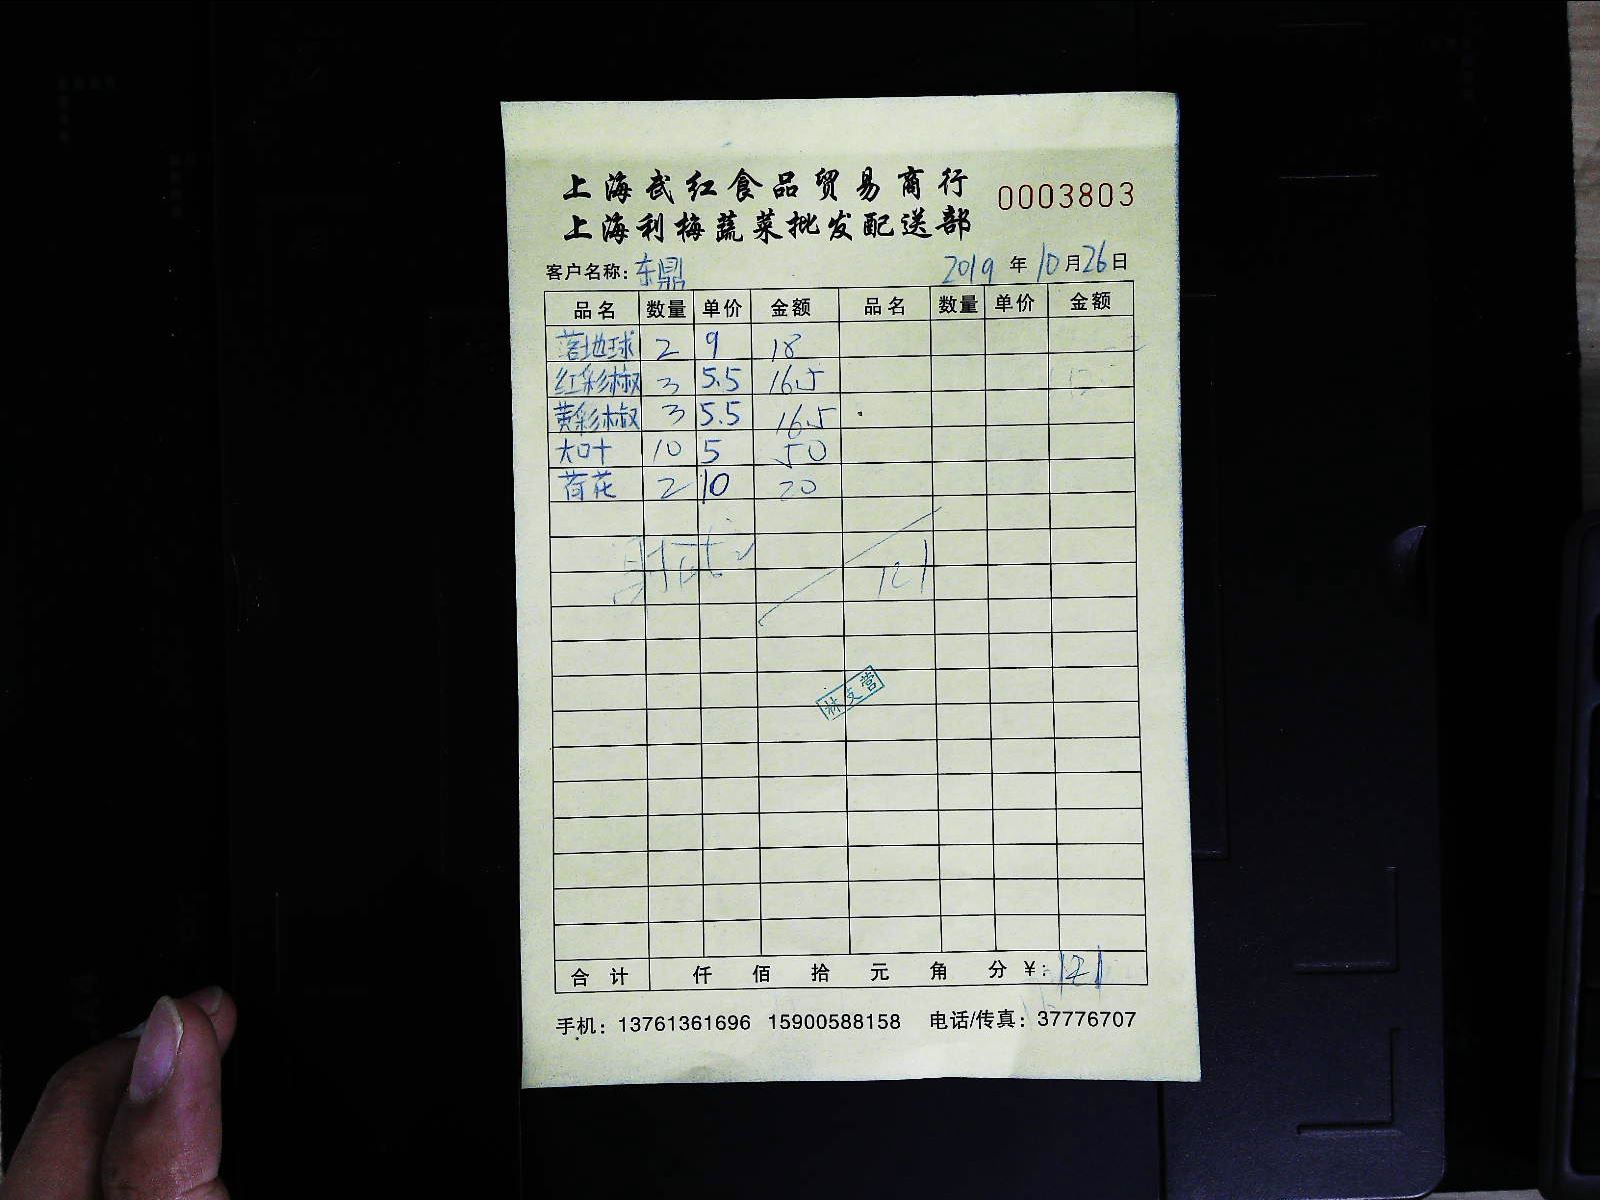 上海武红食品贸易商行
上海利梅蔬菜批发配送部
0003803
客户名称：东鼎 2019年10月26日
品名 数量 单价 金额 品名 数量 单价 金额
落地球 2 9 18
红彩椒 3 5.5 16.5
黄彩椒 3 5.5 16.5
大叶 10 5 50
荷花 2 10 20
121
合计 仟 佰 拾 元 角 分 ¥：121
手机：13761361696 15900588158 电话/传真：37776707